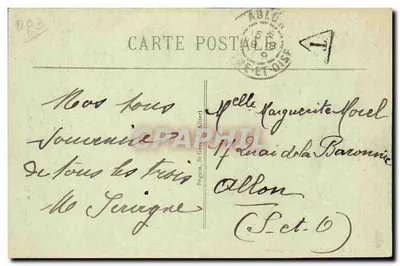 DP3
ABLO
CARTE POSTALE
T
NE-ET-OISE
Nos bons
souvenirs
de tous les trois
M Servigne
Melle Marguerite Morel
17 Quai de la Baronnie
Ablon
(S-et-O)